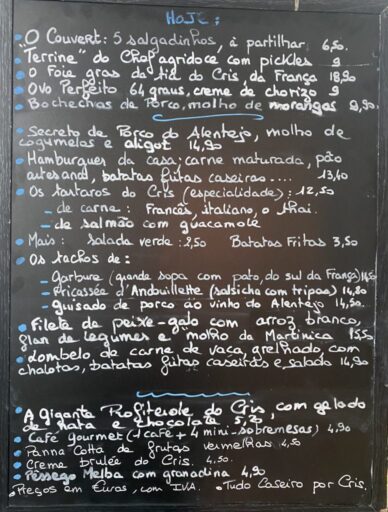 HOJE:
"O Couvert: 5 salgadinhos, à partilhar 6,50.
Terrine" do Chef agridoce com pickles 9
O Foie gras da tia do Cris, da França 18,90
Ovo Perfeito 64 graus, creme de chorizo 9
Bochechas de Porco, molho de morangos 9,90.
Secreto de Porco do Alentejo, molho de
cogumelos e aligot 14,90
Hamburgues da casa; carne maturada, pão
artesanal, batatas fritas caseiras.... 13,40
Os tartaros do Cris (especialidade): 12,50
- de carne: Francês, italiano, o thai.
- de salmão com guacamole
Mais: salada verde: 2,50 Batatas Fritas 3,50
Os tachos de:
- Garbure (grande sopa com pato, do sul da França) 14,50
- Fricassée d'Andouillette (salsicha com tripas) 14,80
- guisado de porco ao vinho do Alentejo 14,50.
Filete de peixe-galo com arroz branco,
flan de legumes e molho da Martinica 15,50
Lombelo de carne de vaca grelhado, com
chalotas, batatas fritas caseiras e salada 14,90
A gigante Profiterole do Cris, com gelado
de nata e chocolate 5,2
Café gourmet (1 café + 4 mini-sobremesas) 4,90
Panna Cotta de frutas vermelhas. 4,50
Creme brulée do Cris. 4.50.
Pêssego Melba com granadina 4,90
Preços em Euros, com IVA. Tudo Caseiro por Cris.